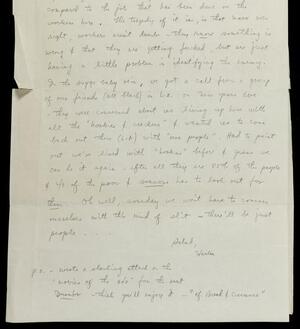 compared to the job that has been done on the
workers here. The tragedy of it is, is that more over
right, workers aren't dumb - they know something is
wrong & that they are getting fucked, but are just
having a little problem in identifying the enemy.
In the vein, we got a call from a group
of our friends (all black) in L.A. on New Years Eve
- they were concerned about us living up here with
all the "honkies & crackers" & wanted us to come
back out there (LA) with "our people". Had to point
out we've lived with "honkies" before & guess we
can do it again - after all they are 80% of the people
& 4/5 of the poor & someone has to look out for
them. Oh well, someday we won't have to concern
ourselves with this kind of shit - there'll be just
people....
Salud,
p.s. - wrote a attack on the
"movies of the 60s" for the next
- think you'll enjoy it - "of Bread & Circuses"